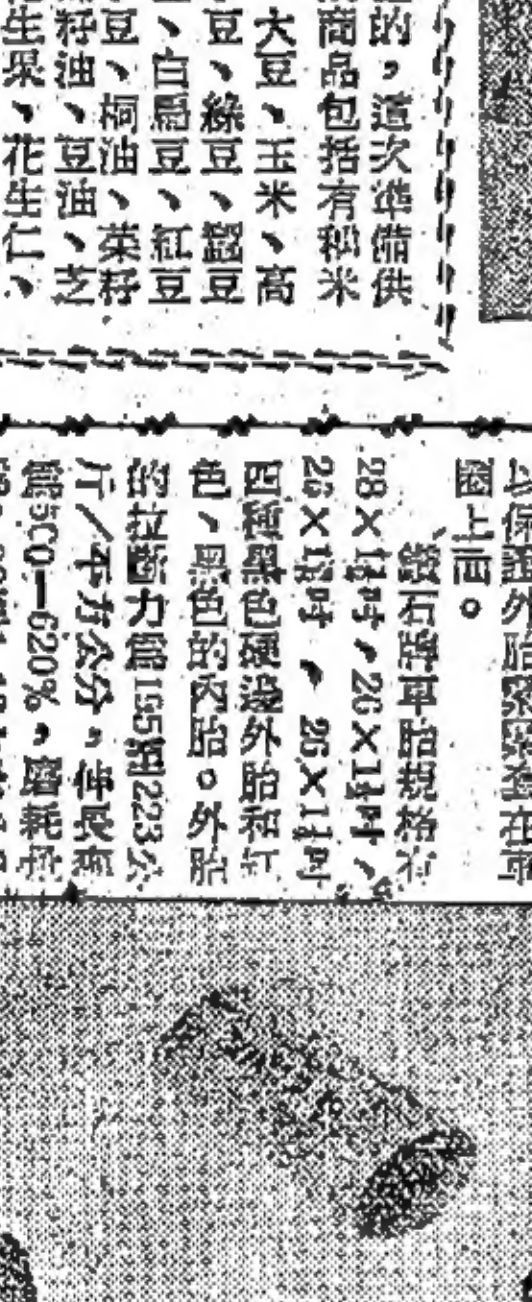 的，這次準備供
商品包括有秈米
大豆、玉米、高
豆、綠豆、蠶豆
、白扁豆、紅豆
豆、桐油、菜籽
籽油、豆油、芝
生果、花生仁、
以保證外胎緊緊套在車
圈上面。
鑽石牌車胎規格有
28×1½吋、26×1½吋、
四種黑色硬邊外胎和紅
色、黑色的內胎。外胎
的拉斷力為165到223公
斤／平方公分，伸長率
為500—620%，磨耗